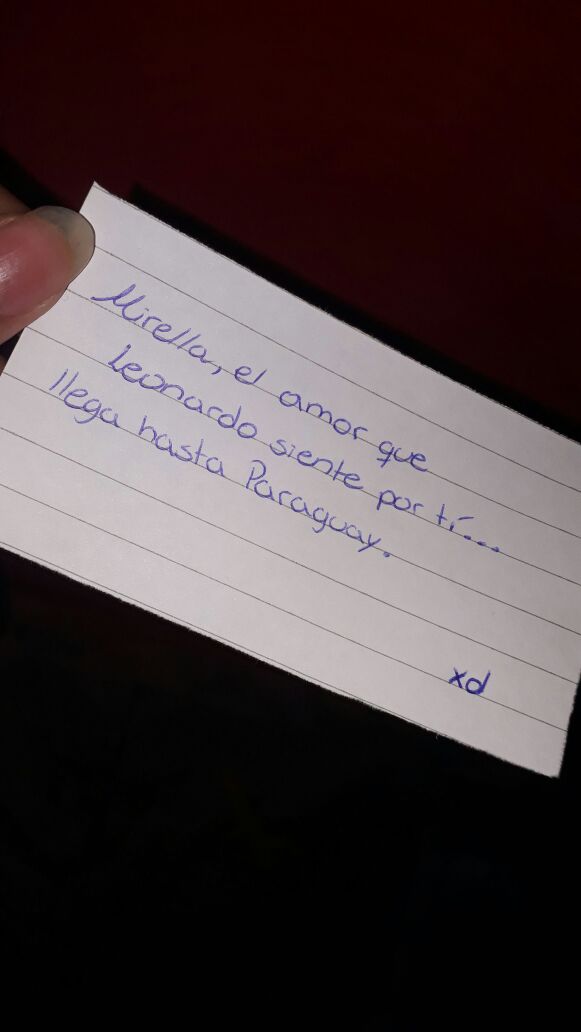 Mirella, el amor que
Leonardo siente por tí...
llega hasta Paraguay.
xd